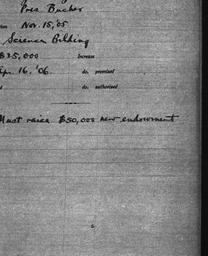 Pres Bucher
Nov. 15, '05
Science Bilding
$25,000 Increase
Apr. 16, '06. do. promised
do. authorised
Must raise $50,000 new endowment